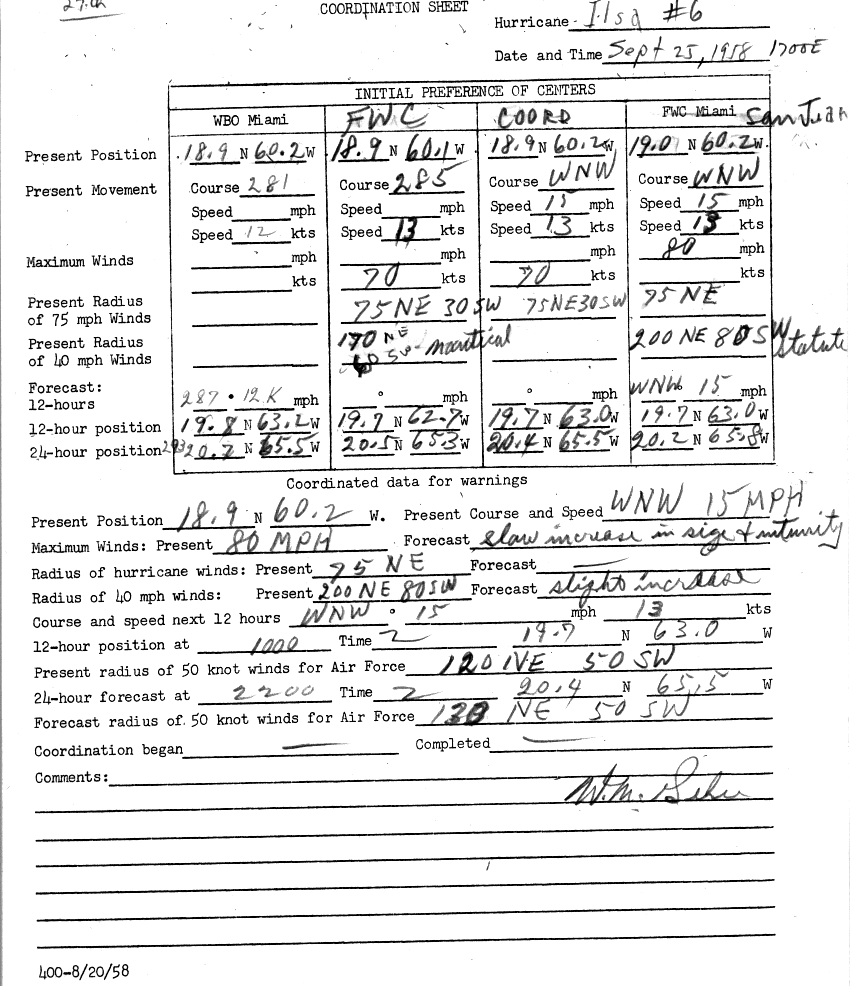 27th
COORDINATION SHEET
Hurricane Ilsa #6
Date and Time Sept 25, 1958 1700E
INITIAL PREFERENCE OF CENTERS
WBO Miami FWC COORD FWC Miami San Juan
Present Position 18.9 N 60.2 W 18.9 N 60.1 W 18.9 N 60.2 W 19.0 N 60.2 W
Present Movement Course 281 Course 285 Course WNW Course WNW
Speed mph Speed mph Speed 15 mph Speed 15 mph
Speed 12 kts Speed 13 kts Speed 13 kts Speed 13 kts
Maximum Winds mph mph mph 80 mph
kts 70 kts 70 kts kts
Present Radius of 75 mph Winds 75 NE 30 SW 75 NE 30 SW 75 NE
Present Radius of 40 mph Winds 170 NE 60 SW nautical 200 NE 80 SW Statute
Forecast:
12-hours 287 ° 12 K mph ° mph ° mph WNW 15 mph
12-hour position 19.8 N 63.2 W 19.7 N 62.7 W 19.7 N 63.0 W 19.7 N 63.0 W
24-hour position 293 20.7 N 65.5 W 20.5 N 65.3 W 20.4 N 65.5 W 20.2 N 65.8 W
Coordinated data for warnings
Present Position 18.9 N 60.2 W. Present Course and Speed WNW 15 MPH
Maximum Winds: Present 80 MPH Forecast slow increase in size & intensity
Radius of hurricane winds: Present 75 NE Forecast —
Radius of 40 mph winds: Present 200 NE 80 SW Forecast slight increase
Course and speed next 12 hours WNW ° 15 mph 13 kts
12-hour position at 1000 Time Z 19.7 N 63.0 W
Present radius of 50 knot winds for Air Force 120 NE 50 SW
24-hour forecast at 2200 Time Z 20.4 N 65.5 W
Forecast radius of 50 knot winds for Air Force 130 NE 50 SW
Coordination began — Completed —
Comments:
W.M.
400-8/20/58